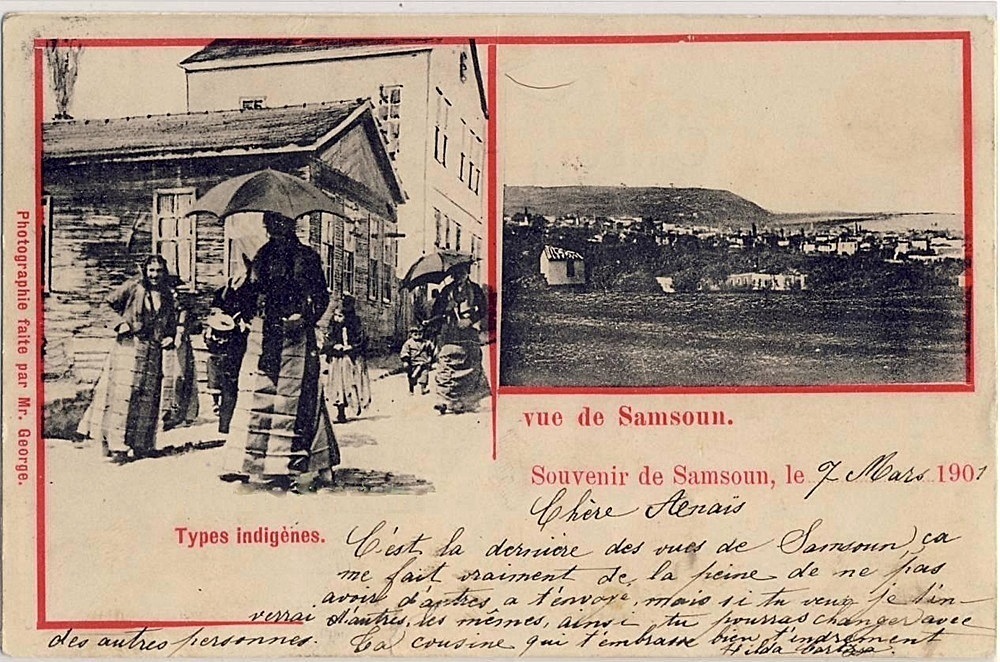 Photographie faite par Mr. George.
vue de Samsoun.
Souvenir de Samsoun, le 7 Mars 1901
Types indigènes.
Chère
C'est la dernière des vues de Samsoun, ça
me fait vraiment de la peine de ne pas
avoir d'autres a t'envoyé, mais si tu veux je t'en-
verrai d'autres, les mêmes, ainsi tu pourras changer avec
des autres personnes. Ta cousine qui t'embrasse bien
Hilda